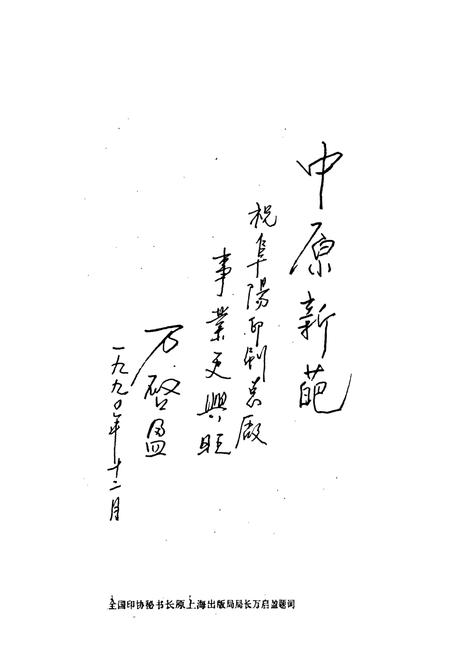 中原新葩
祝阜陽印刷总厰
事業更興旺
万啓盈
一九九〇年十二月
全国印协秘书长原上海出版局局长万启盈题词